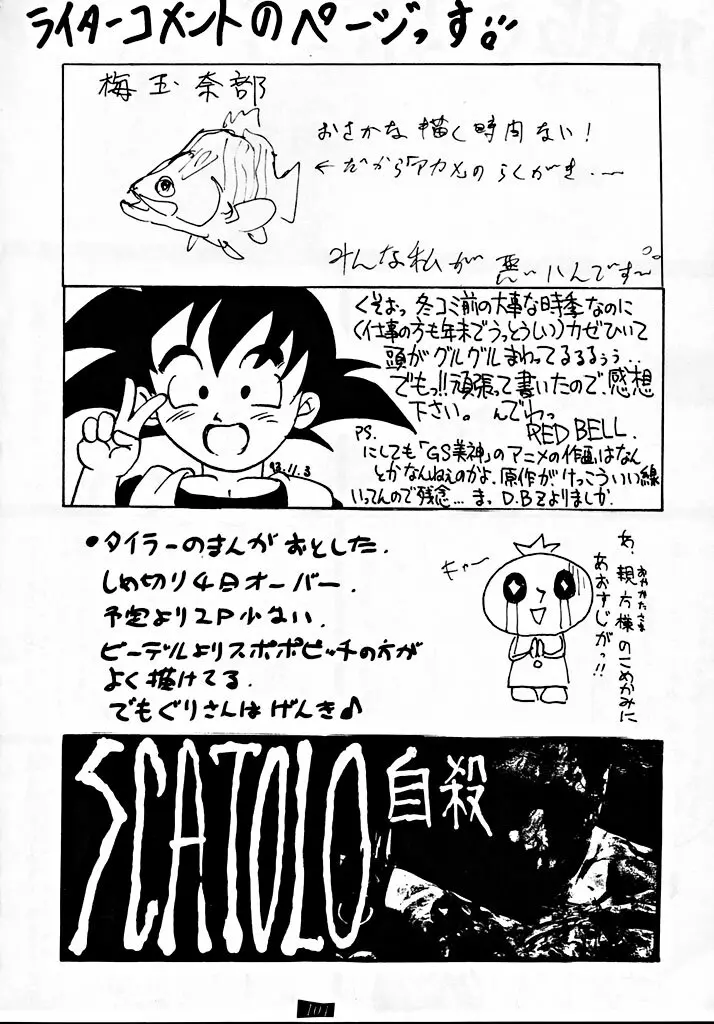 ライターコメントのページっす!!
梅玉奈部
おさかな描く時間ない!
←だから「アカメ」のらくがき・〜
みんな私が悪いんです〜。
くそぉっ冬コミ前の大事な時季なのに
(仕事の方も年末でうっとうしい)カゼひいて
頭がグルグルまわってるるるぅぅ..
でもっ!!頑張って書いたので、感想
下さい。 んでわっ
RED BELL.
'93.11.3
PS.
にしても「GS美神」のアニメの作画はなん
とかなんねぇのかよ、原作がけっこういい線
いってんので残念…ま、D.B.Zよりましか.
・タイラーのまんがおとした.
しめ切り4日オーバー.
予定より2P少ない.
ビーデルよりスポポビッチの方が
よく描けてる.
でもぐりさんはげんき♪
キャー
あ、親方様のこめかみに
おやかたさま
あおすじがっ!!
SCATOLO 自殺
101